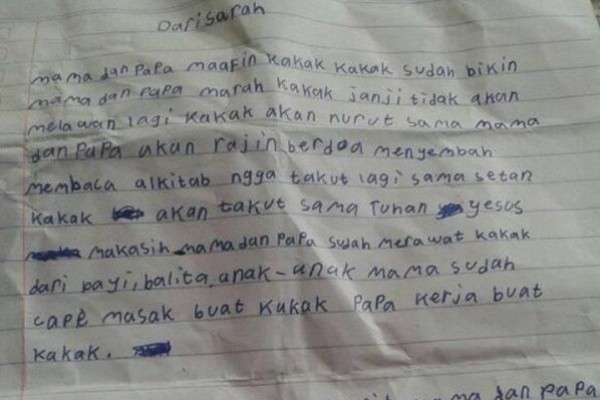 Dari sarah
mama dan papa maafin kakak kakak sudah bikin
mama dan papa marah kakak janji tidak akan
melawan lagi kakak akan nurut sama mama
dan papa akan rajin berdoa menyembah
membaca alkitab ngga takut lagi sama setan
kakak akan takut sama Tuhan yesus
makasih mama dan papa sudah merawat kakak
dari bayi, balita, anak-anak mama sudah
cape masak buat kakak papa kerja buat
kakak.
ma dan papa